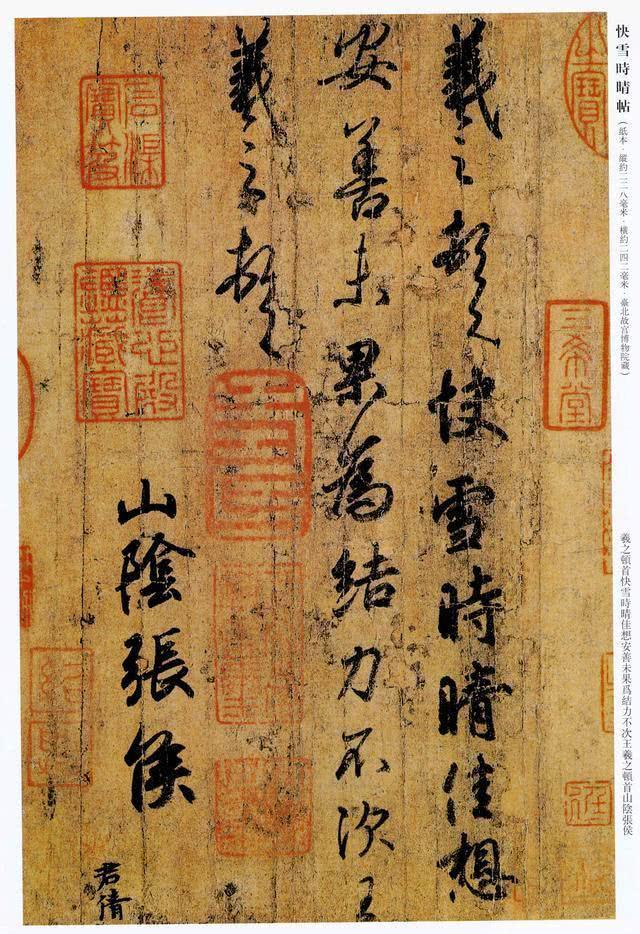 快雪時晴帖
（紙本·縱約二二八毫米·橫約二四二毫米·臺北故宮博物院藏）
羲之頓首快雪時晴佳想安善未果爲結力不次王羲之頓首山陰張侯
三希堂
羲之頓首快雪時晴佳想
安善未果為結力不次王
羲之頓首
山陰張侯
君倩
石渠寶笈
養心殿鑑藏寶